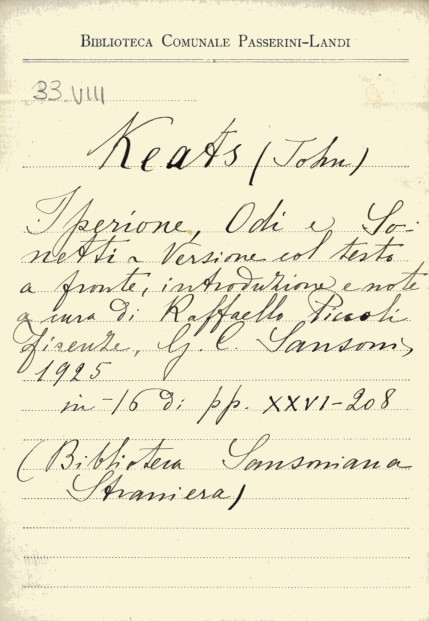 BIBLIOTECA COMUNALE PASSERINI-LANDI
33 VIII
Keats (John)
Iperione, Odi e So-
netti - Versione col testo
a fronte, introduzione e note
a cura di Raffaello Piccoli
Firenze, G. C. Sansoni,
1925
in-16 di pp. XXVI-208
(Biblioteca Sansoniana
Straniera)